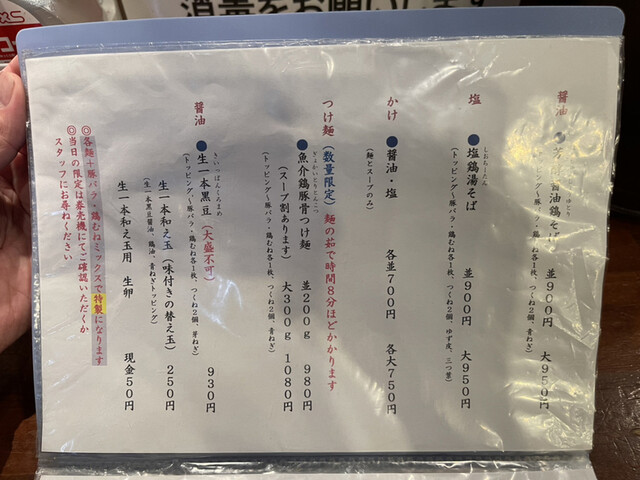 消毒をお願いします
醤油
●芳 醤油鶏そば 並900円 大950円
(トッピング〜豚バラ・鶏むね各1枚、つくね2個、青ねぎ)
塩
しおもーたん
●塩鶏湯そば 並900円 大950円
(トッピング〜豚バラ・鶏むね各1枚、つくね2個、ゆず皮、三つ葉)
かけ
●醤油・塩 各並700円 各大750円
(麺とスープのみ)
つけ麺(数量限定)麺の茹で時間8分ほどかかります
ぎょかいとりとんこつ
●魚介鶏豚骨つけ麺 並200g 980円
(スープ割あります) 大300g 1080円
(トッピング〜豚バラ・鶏むね各1枚、つくね2個、青ねぎ)
醤油
きいっぽんくろまめ
●生一本黒豆(大盛不可) 930円
(トッピング〜豚バラ・鶏むね各1枚、つくね2個、芽ねぎ)
生一本和え玉(味付きの替え玉) 250円
(生一本黒豆醤油、鶏油、青ねぎトッピング)
生一本和え玉用 生卵 現金50円
◎各麺+豚バラ・鶏むねミックスで特製になります
◎当日の限定は券売機にてご確認いただくか
スタッフにお尋ねください